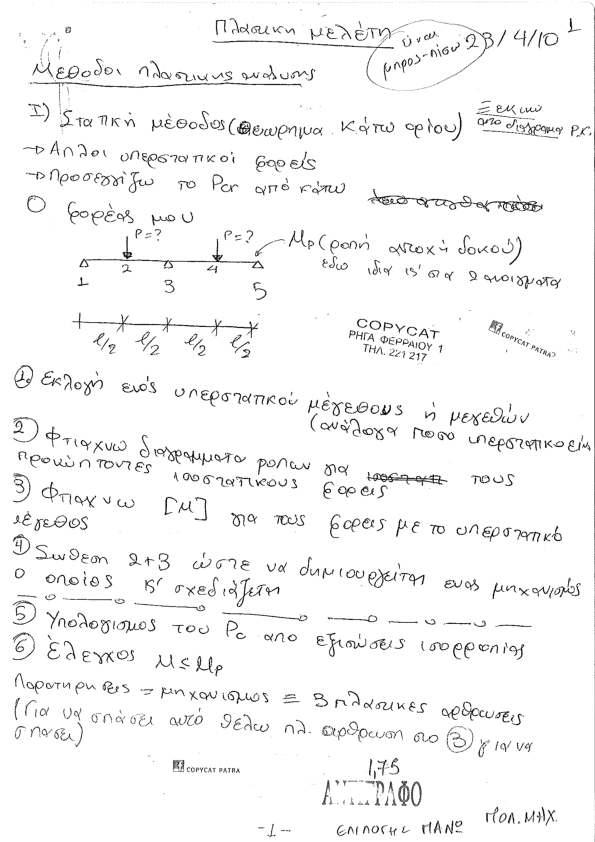 Πλαστικη μελέτη
είναι μπρος-πίσω
23/4/10
1
Μεθοδοι πλαστικης ανάλυσης
I) Στατική μέθοδος (θεώρημα κάτω οριου)
Ξεκινω
απο διαγραμα Ρ.Κ.
→ Απλοι υπερστατικοί φορείς
→ Προσεγγίζω το Pcr από κάτω
Ο φορέας μου
P=? P=?
Mp (ροπή αντοχή δοκού)
εδω ιδια κ' στα 2 ανοιγματα
1 2 3 4 5
l/2 l/2 l/2 l/2
COPYCAT
ΡΗΓΑ ΦΕΡΡΑΙΟΥ 1
ΤΗΛ. 221 217
COPYCAT PATRA
1. Εκλογή ενός υπερστατικού μέγεθους ή μεγεθών
(ανάλογα ποσο υπερστατικο είν
2 Φτιαχνω διαγραμματα ροπων για τους
προκύπτοντες ισοστατικους φορεις
3 Φτιαχνω [M] για τους φορεις με το υπερστατικό
μέγεθος
4 Συνθεση 2+3 ώστε να δημιουργείται ενας μηχανισμός
ο οποίος κ' σχεδιάζεται
5 Υπολογισμος του Pc απο εξισώσεις ισορροπίας
6 Έλεγχος M≤Mp
Παρατηρησεις = μηχανισμως = 3 πλαστικες αρθρωσεις
(Για να σπάσει αυτό θέλω πλ. αρθρωση στο 3 για να
σπασει)
COPYCAT PATRA
1,75
ΑΝΤΙΓΡΑΦΟ
-1-
ΕΠΙΛΟΓΗΣ ΜΑΝΩ
ΠΟΛ. ΜΗΧ.